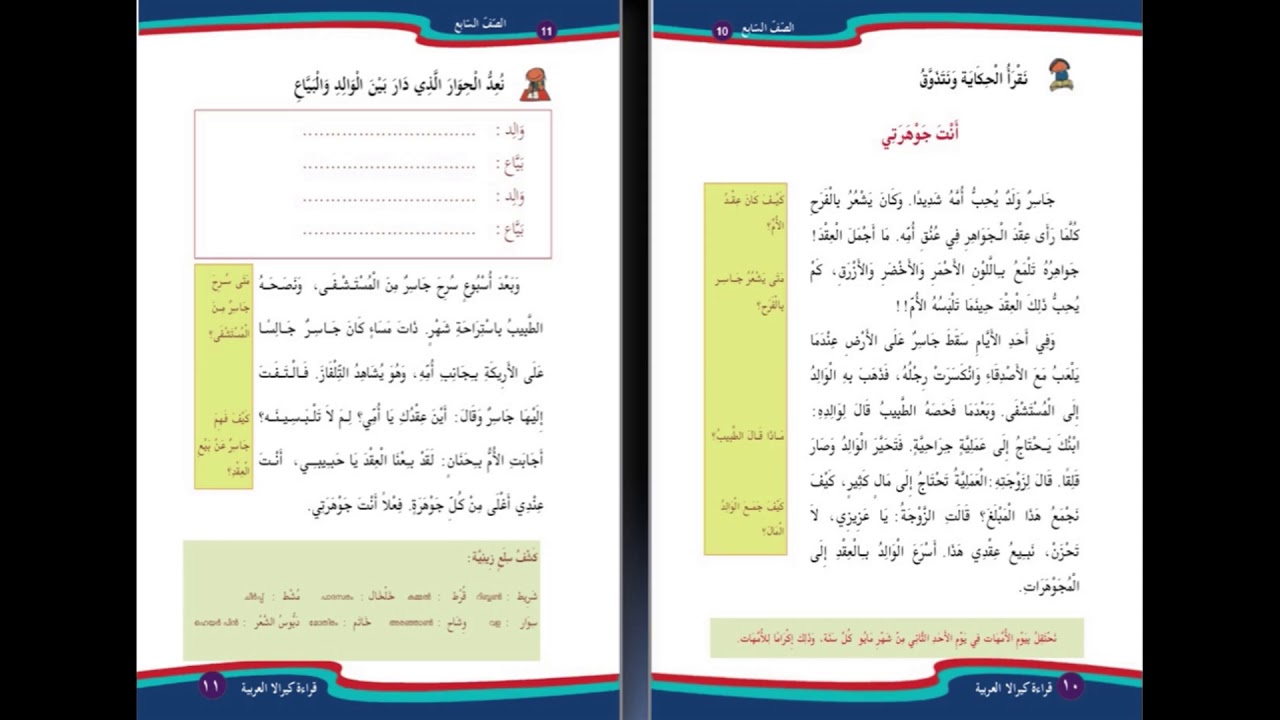 الصّفّ السّابع
10
نَقْرَأُ الْحِكَايَة وَنَتَذَوَّقُ
أَنْتَ جَوْهَرَتِي
جَاسِرٌ وَلَدٌ يُحِبُّ أُمَّهُ شَدِيدًا. وَكَانَ يَشْعُرُ بِالْفَرَحِ
كُلَّمَا رَأَى عِقْدَ الْجَوَاهِرِ فِي عُنُقِ أُمِّهِ. مَا أَجْمَلَ الْعِقْدَ!
جَوَاهِرُهُ تَلْمَعُ بِاللَّوْنِ الأَحْمَرِ وَالأَخْضَرِ وَالأَزْرَقِ، كَمْ
يُحِبُّ ذَلِكَ الْعِقْدَ حِينَمَا تَلْبَسُهُ الأُمّ!!
وَفِي أَحَدِ الأَيَّامِ سَقَطَ جَاسِرٌ عَلَى الأَرْضِ عِنْدَمَا
يَلْعَبُ مَعَ الأَصْدِقَاءِ وَانْكَسَرَتْ رِجْلُهُ، فَذَهَبَ بِهِ الْوَالِدُ
إِلَى الْمُسْتَشْفَى. وَبَعْدَمَا فَحَصَهُ الطَّبِيبُ قَالَ لِوَالِدِهِ:
ابْنُكَ يَحْتَاجُ إِلَى عَمَلِيَّةٍ جِرَاحِيَّةٍ. فَتَحَيَّرَ الْوَالِدُ وَصَارَ
قَلِقًا. قَالَ لِزَوْجَتِهِ:الْعَمَلِيَّةُ تَحْتَاجُ إِلَى مَالٍ كَثِيرٍ، كَيْفَ
نَجْمَعُ هَذَا الْمَبْلَغَ؟ قَالَتِ الزَّوْجَةُ: يَا عَزِيزِي، لاَ
تَحْزَنْ، نَبِيعُ عِقْدِي هَذَا. أَسْرَعَ الْوَالِدُ بِالْعِقْدِ إِلَى
الْمُجَوْهَرَاتِ.
كَيْفَ كَانَ عِقْدُ
الأُمِّ؟
مَتَى يَشْعُرُ جَاسِر
بِالْفَرَحِ؟
مَاذَا قَالَ الطَّبِيبُ؟
كَيْفَ جَمَعَ الْوَالِدُ
الْمَالَ؟
نَحْتَفِلُ بِيَوْمِ الأُمَّهَاتِ فِي يَوْمِ الأَحَدِ الثَّانِي مِنْ شَهْرِ مَايُو كُلَّ سَنَة، وَذَلِكَ إِكْرَامًا لِلأُمَّهَاتِ.
١٠ قراءة كيرالا العربية
الصّفّ السّابع
11
نُعِدُّ الْحِوَارَ الَّذِي دَارَ بَيْنَ الْوَالِدِ وَالْبَيَّاعِ
وَالِد : ..............................
بَيَّاع : ..............................
وَالِد : ..............................
بَيَّاع : ..............................
وَبَعْدَ أُسْبُوعٍ سُرِحَ جَاسِرٌ مِنَ الْمُسْتَشْفَى، وَنَصَحَهُ
الطَّبِيبُ بِاسْتِرَاحَةِ شَهْرٍ. ذَاتَ مَسَاءٍ كَانَ جَاسِرٌ جَالِسًا
عَلَى الأَرِيكَةِ بِجَانِبِ أُمِّهِ، وَهُوَ يُشَاهِدُ التِّلْفَازَ. فَالْتَفَتَ
إِلَيْهَا جَاسِرٌ وَقَالَ: أَيْنَ عِقْدُكِ يَا أُمِّي؟ لِمَ لاَ تَلْبَسِينَهُ؟
أَجَابَتِ الأُمُّ بِحَنَانٍ: لَقَدْ بِعْنَا الْعِقْدَ يَا حَبِيبِي، أَنْتَ
عِنْدِي أَغْلَى مِنْ كُلِّ جَوْهَرَةٍ. فِعْلاً أَنْتَ جَوْهَرَتِي.
مَتَى سُرِحَ
جَاسِرٌ مِنَ
الْمُسْتَشْفَى؟
كَيْفَ فَهِمَ
جَاسِرٌ عَنْ بَيْعِ
الْعِقْدِ؟
كَشْفُ سِلَعٍ زِينِيَّة:
شَرِيط : റിബ്ബൺ قُرْط : കമ്മൽ خَلْخَال : പാദസരം مُشْط : ചീർപ്പ്
سِوَار : വള وِشَاح : അരഞ്ഞാൺ خَاتَم : മോതിരം دَبُّوسُ الشَّعْرِ : ഹെയർ പിൻ
١١ قراءة كيرالا العربية